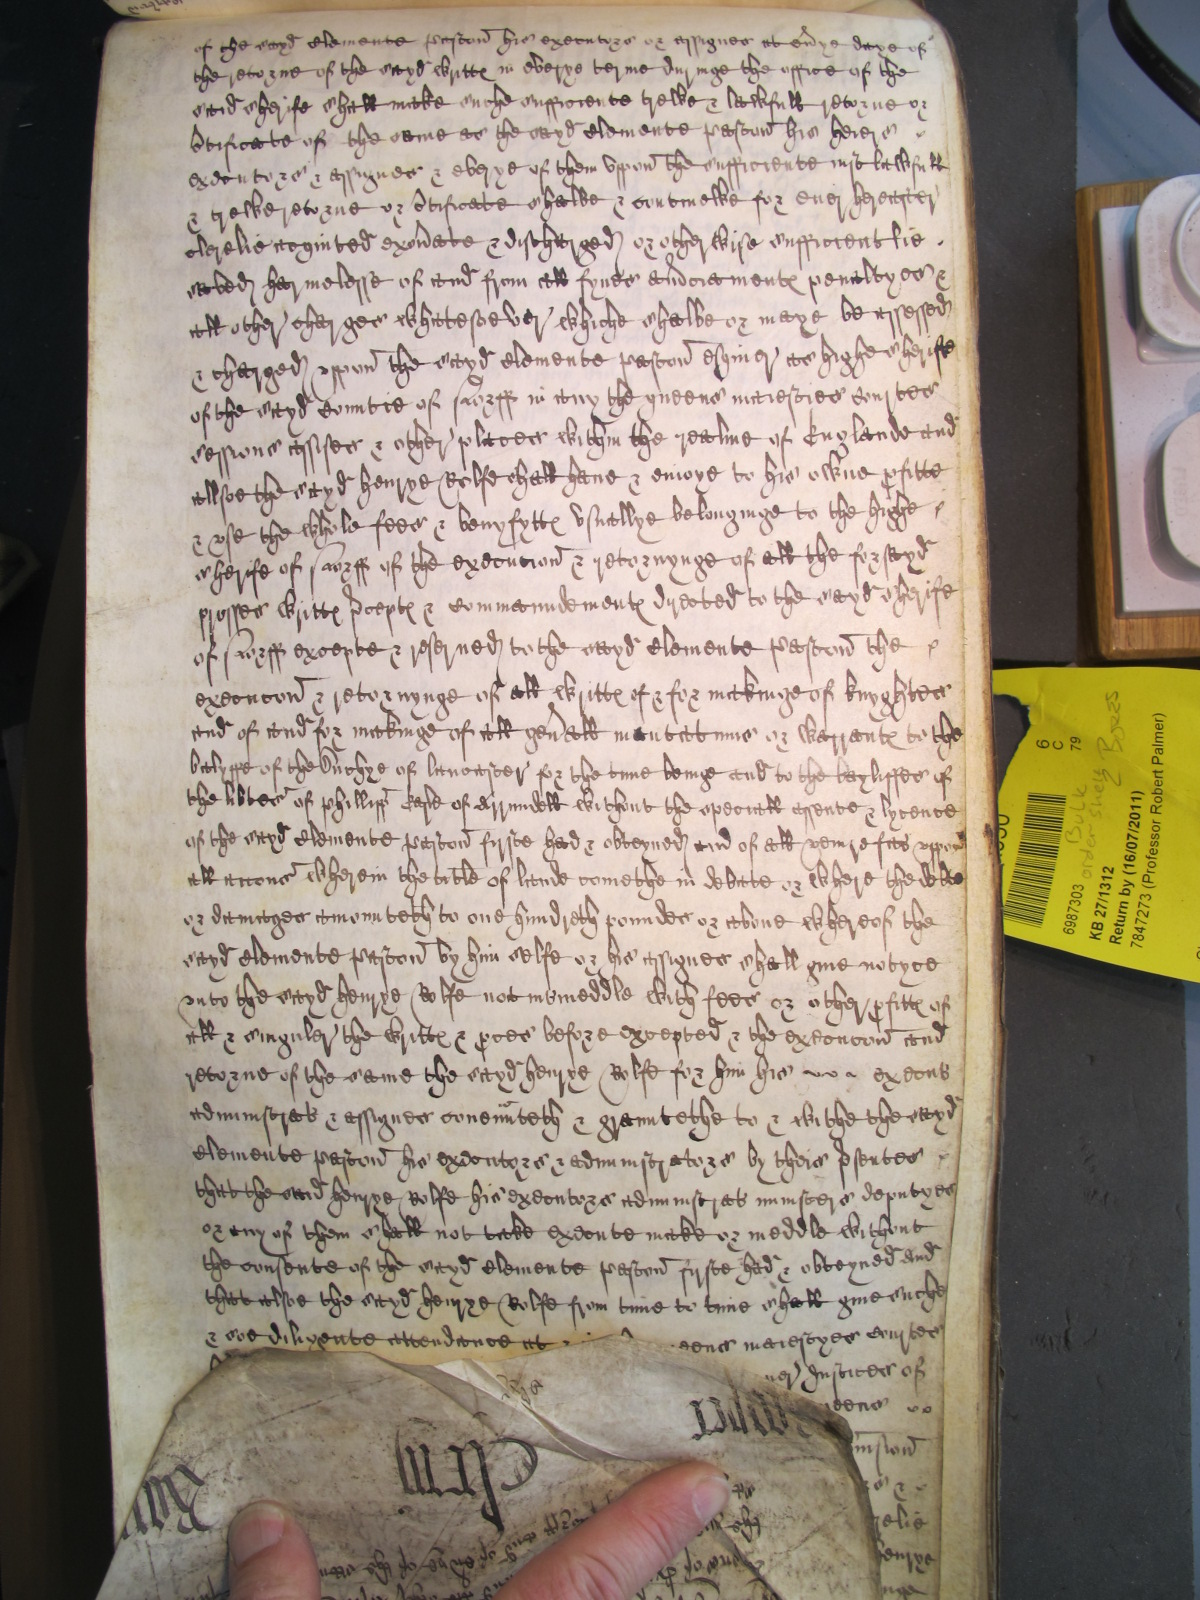 of the sayd Clemente Paston his executors or assignes at euye daye of
the retorne of the sayd writte in everye terme duringe the office of the
said Sherife shall make suche sufficiente trewe & lawfull retorne or
certificate of the same as the sayd Clemente Paston his heires
executors & assignes & everye of them vppon the sufficiente iust lawfull
& trewe retorne or certificate shalbe & contineue for euer hereafter
clerelie acquited exonerate & discharged or otherwise sufficientlie
saved harmelesse of and from all fynes amerciamentes penaltyes &
all other charges whatesoever whiche shalbe or maye be assessed
& charged vppon the sayd Clemente Paston esquier as highe Sherife
of the sayd Countie of Norff in any the quenes maiesties courtes
sessions assises & other places within the realme of Englande and
allsoe the sayd Henrye Rolfe shall haue & enioye to his owne pfitte
& vse the whole fees & benyfyttes vsuallye belonginge to the highe
Sherife of Norff of the execution & retornynge of all the forsayd
prosses writtes preceptes & commaundementes dyrected to the sayd Sherife
of Norff excepte & reserued to the sayd Clemente Paston the
execucion & retornynge of all writtes of & for makinge of knyghtes
and of and for makinge of all generall mandatumes or warrantes to the
bayliffe of the Duchye of Lancaster for the time beinge and to the bayliffes of
the liberties of Phillipp Earle of Arrundell without the speciall assente & lycence
of the sayd Clemente Paston firste had & obteyned and of all venire facias vppon
all accons wherein the title of lande comethe in debate or where the debte
or damages amounteth to one hundreth poundes or aboue whereof the
sayd Clemente Paston by him selfe or his assignes shall giue notyce
vnto the sayd Henrye Rolfe not to meddle with fees or other pfittes of
all & singuler the writtes & proces before excepted & the execucion and
retorne of the same the sayd Henrye Rolfe for him his executors
administrators & assignes coueniteth & grauntethe to & withe the sayd
Clemente Paston his executors & administrators by theis presentes
that the said Henrye Rolfe his executors administrators ministers deputyes
or any of them shall not take execute make or meddle without
the consente of the sayd Clemente Paston firste had & obteyned and
that alsoe the sayd Henrye Rolfe from time to time shall giue suche
& soe diligente attendance at maiestyes courtes
Justices of
6
C
79
6987303
KB 27/1312
Return by (16/07/2011)
7847273 (Professor Robert Palmer)
Bulk
order shelf